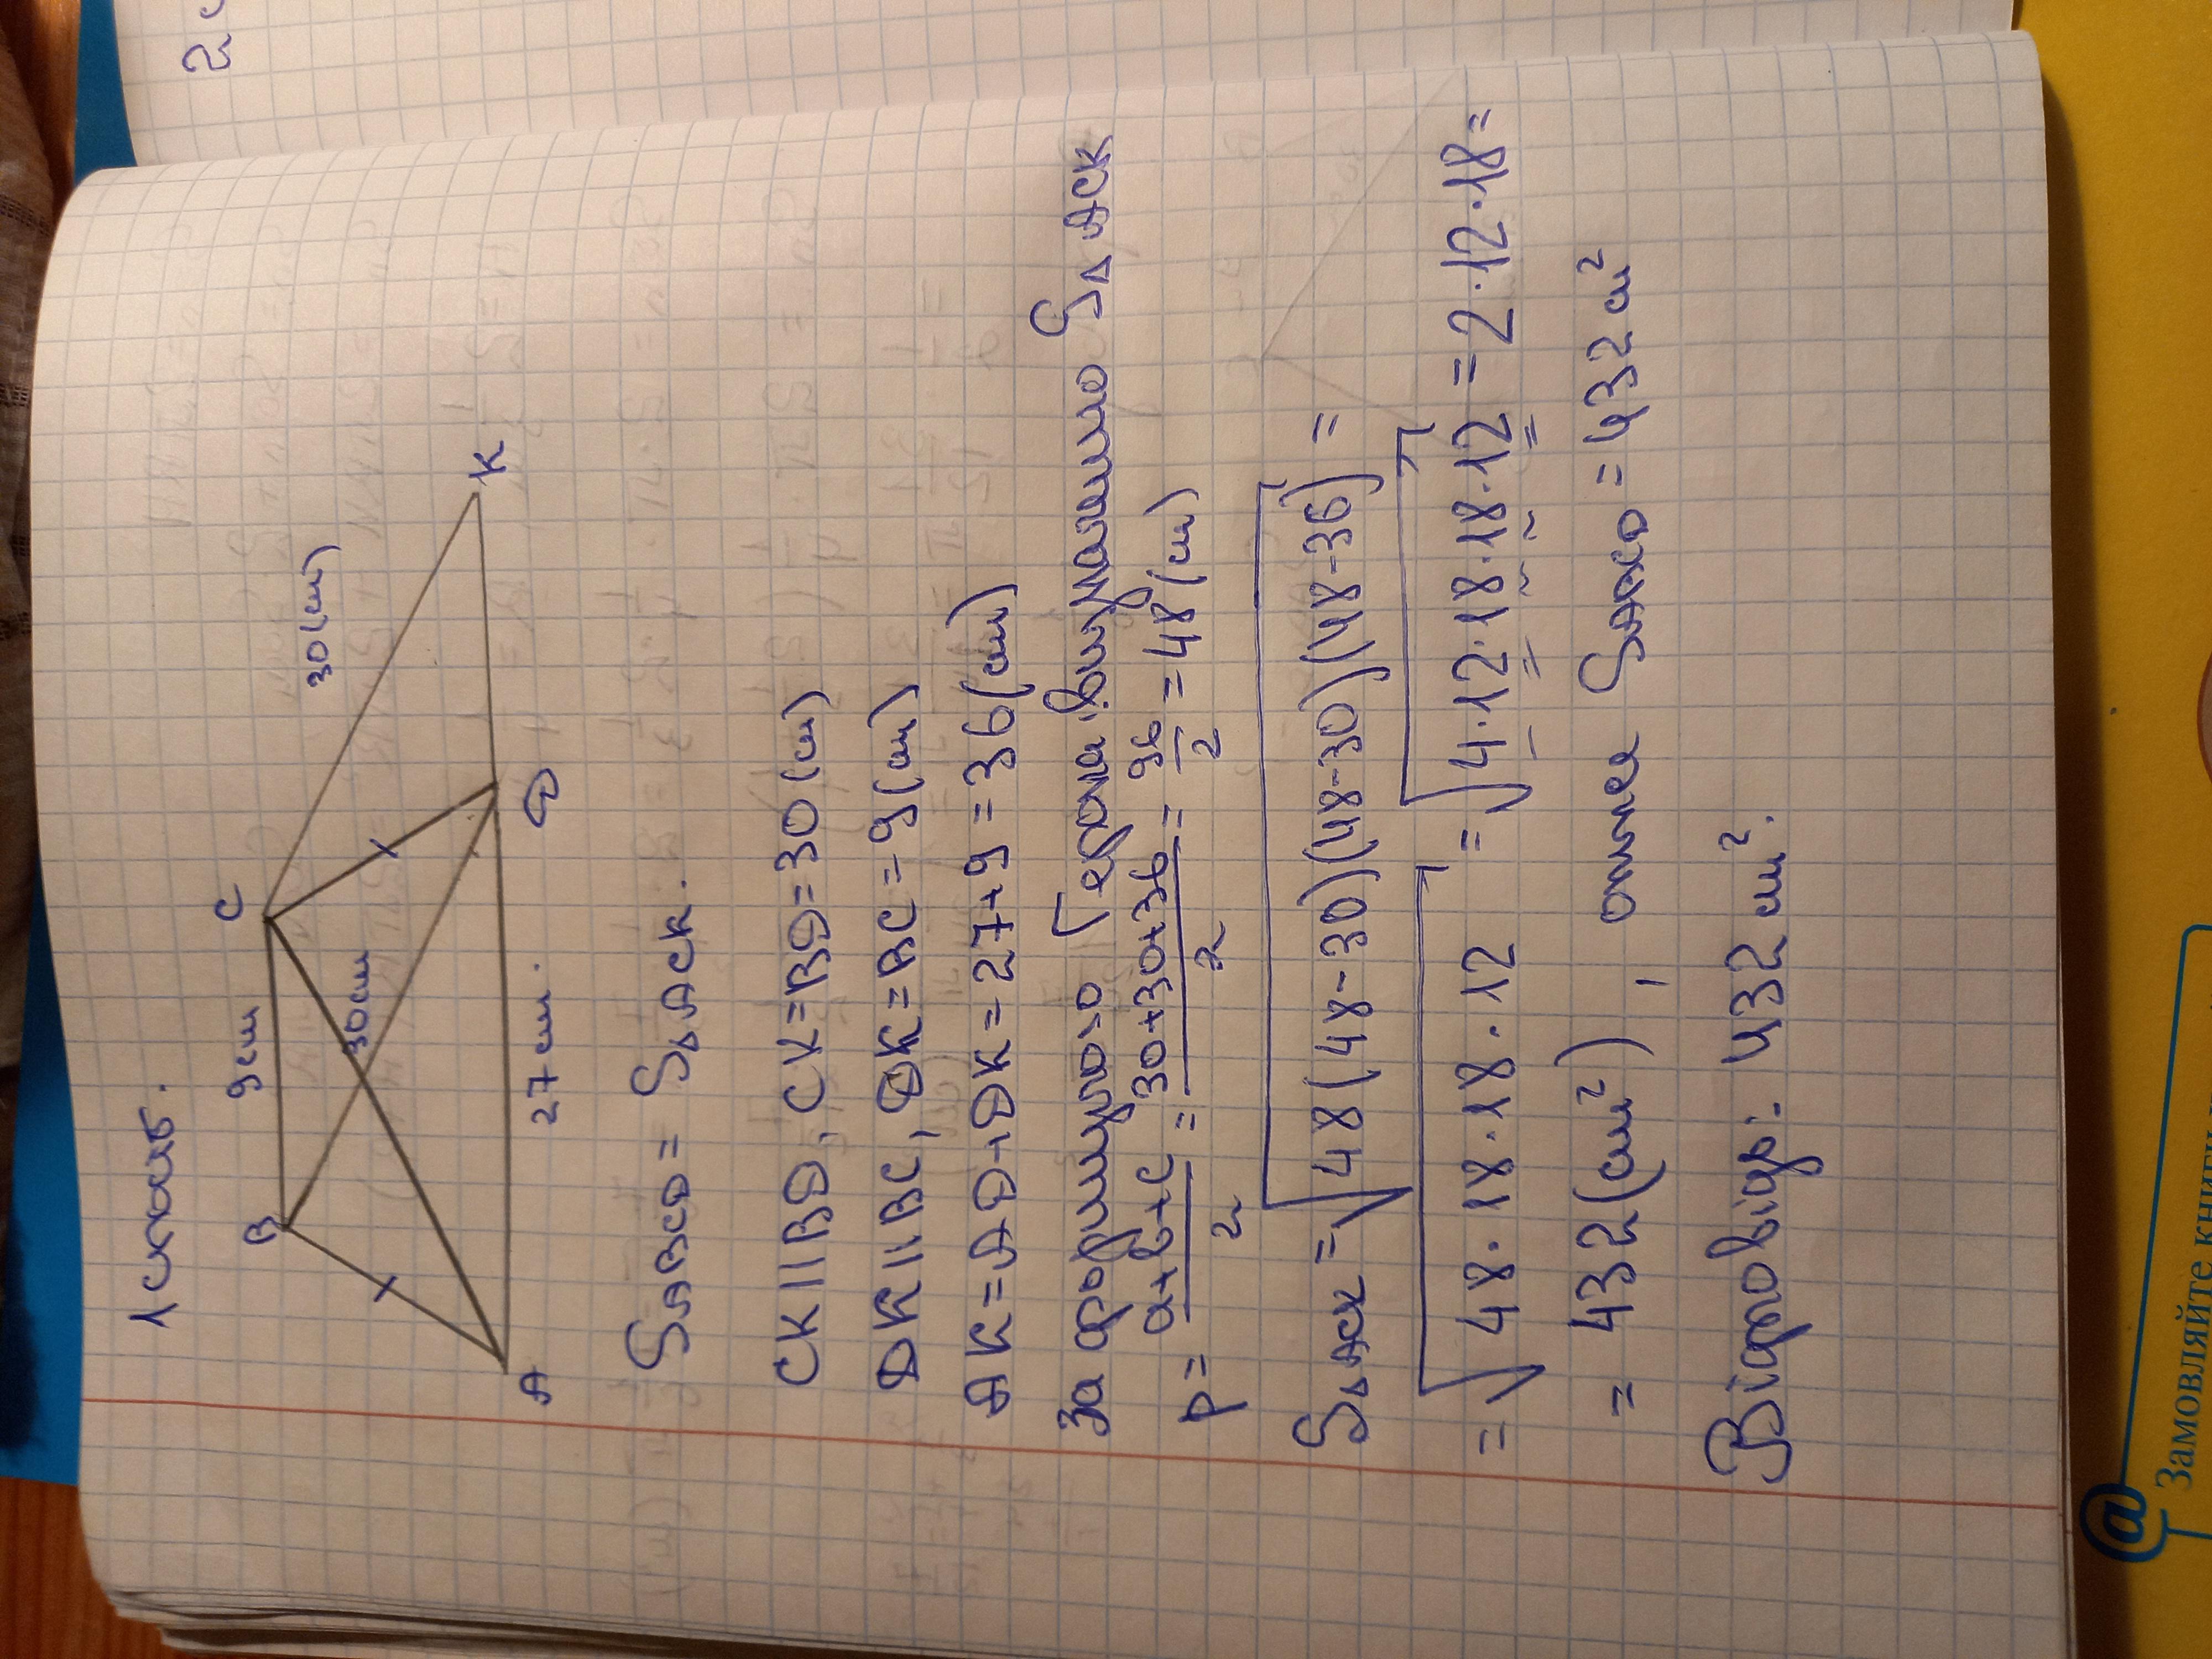 1 спосіб.
B 9см C
30(см)
30см
A 27см. D K
S ABCD = S△ACK.
CK||BD, CK=BD=30(см)
DK||BC, DK=BC=9(см)
AK=AD+DK=27+9=36(см)
За формулою Герона: S△ACK
p= a+b+c/2 = 30+30+36/2 = 96/2 = 48(см)
S△ACK = √48(48-30)(48-30)(48-36) =
= √48·18·18·12 = √4·12·18·18·12 = 2·12·18=
= 432(см²), отже SABCD=432см²
Відповідь: 432см².
2
@
Замовляйте книги